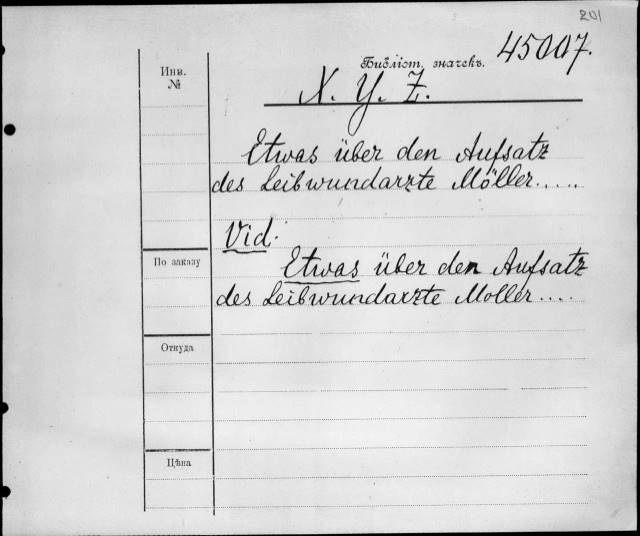 201
Инв.
№
Библіот. значекъ. 45007.
X. Y. Z.
Etwas über den Aufsatz
des Leibwundarzte Möller.....
Vid.
По заказу
Etwas über den Aufsatz
des Leibwundarzte Moller....
Откуда
Цѣна